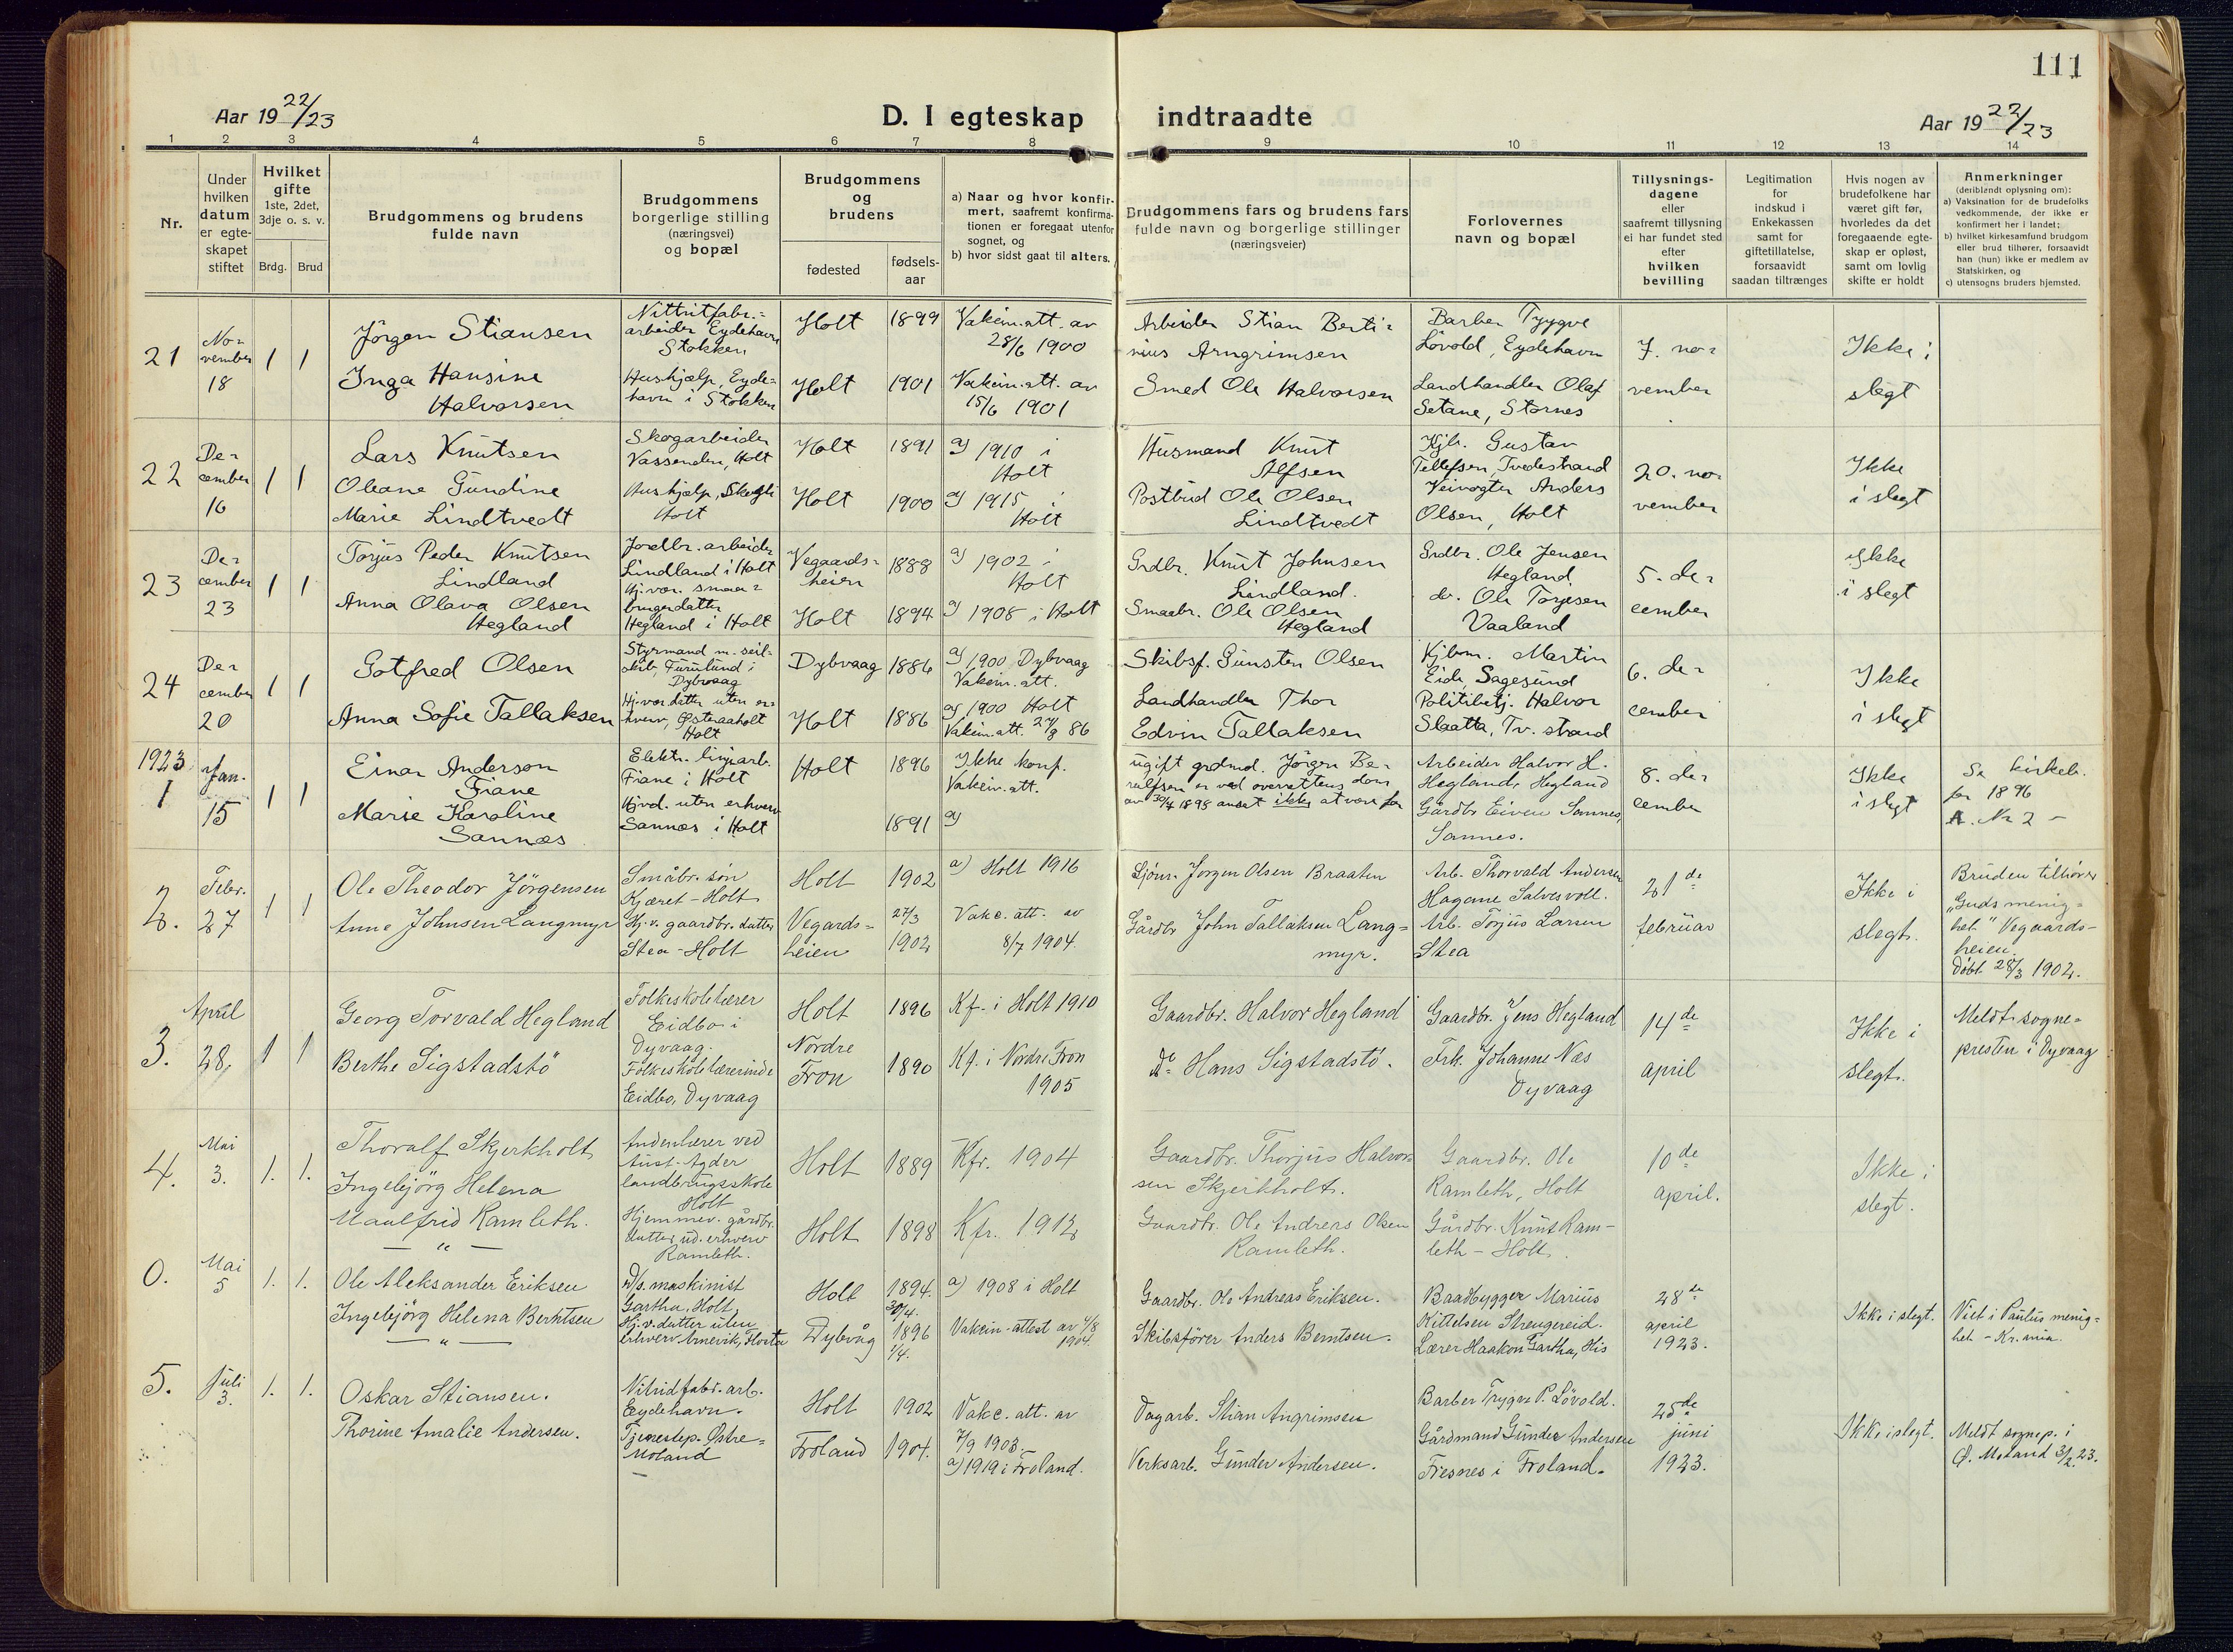 111
Aar 19 22/23
D. I egteskap indtraadte
Aar 19 22/23
1 2 3 4 5 6 7 8 9 10 11 12 13 14
Nr.
Under hvilken datum er egte-skapet stiftet
Hvilket gifte 1ste, 2det, 3dje o. s. v.
Brdg. Brud
Brudgommens og brudens fulde navn
Brudgommens borgerlige stilling (næringsvei) og bopæl
Brudgommens og brudens
fødested
fødsels-aar
a) Naar og hvor konfir-mert, saafremt konfirma-tionen er foregaat utenfor sognet, og
b) hvor sidst gaat til alters.
Brudgommens fars og brudens fars fulde navn og borgerlige stillinger (næringsveier)
Forlovernes navn og bopæl
Tillysnings-dagene eller saafremt tillysning ei har fundet sted efter hvilken bevilling
Legitimation for indskud i Enkekassen samt for giftetillatelse, forsaavidt saadan tiltrænges
Hvis nogen av brudefolkene har været gift før, hvorledes da det foregaaende egte-skap er opløst, samt om lovlig skifte er holdt
Anmerkninger
(deriblandt oplysning om):
a) Vaksination for de brudefolks vedkommende, der ikke er konfirmert her i landet;
b) hvilket kirkesamfund brudgom eller brud tilhører, forsaavidt han (hun) ikke er medlem av Statskirken, og
c) utensogns bruders hjemsted.
21
No-
vember
18
1 1
Jörgen Stiansen
Nittritfabr.-
arbeider Eydehavn
Stokken
Holt 1899
Vakcin. att. av
28/6 1900
Arbeider Stian Berti-
nius Arngrimsen
Barber Tyygve
Lövold, Eydehavn
7. no-
vember
Ikke i
slegt
Inga Hansine
Halvorsen
Hushjælp, Eyde-
havn i Stokken
Holt 1901
Vakcin. att. av
15/6 1901
Smed Ole Halvorsen
Landhandler Olaf
Setane, Stornes
22
De-
cember
16
1 1
Lars Knutsen
Skogarbeider
Vassenden, Holt
Holt 1891
a) 1910 i
Holt
Husmand Knut
Alfsen
Kjb. Gustav
Tellefsen, Tvedestrand
20. no-
vember
Ikke
i slegt
Oleane Gundine
Marie Lindtvedt
Hushjælp, Skogli
Holt
Holt 1900
a) 1915 i
Holt
Postbud Ole Olsen
Lindtvedt
Veivogter Anders
Olsen, Holt
23
De-
cember
23
1 1
Torjus Peder Knutsen
Lindland
Jordbr. arbeider
Lindland i Holt
Vegaards-
heien
1888
a) 1902 i
Holt
Grdbr. Knut Johnsen
Lindland.
Grdbr. Ole Jensen
Hegland
5. de-
cember
Ikke
i slegt
Anna Olava Olsen
Hegland
Hj. vær. smaa-
brugerdatter
Hegland i Holt
Holt 1894
a) 1908 i Holt
Smaabr. Ole Olsen
Hegland
do. Ole Torjesen
Vaaland
24
De-
cember
20
1 1
Gotfred Olsen
Styrmand m. seil-
skib, Furulund i
Dybvaag
Dybvaag 1886
a) 1900 Dybvaag
Vakcin. att.
Skibsf. Gunsten Olsen
Kjbm. Martin
Eide, Sagesund
6. de-
cember
Ikke
i slegt
Anna Sofie Tallaksen
Hj. vær. datter uten er-
hverv, Østeraaholt
Holt
Holt 1886
a) 1900 Holt
Vakcin. att. 27/8 86
Landhandler Thor
Edvin Tallaksen
Politibetj. Halvor
Slaatta, Tv. strand
1923
1
Jan.
15
1 1
Einar Anderson
Fiane
Elektr. linjearb.
Fiane i Holt
Holt 1896
Ikke konf.
Vakcin. att.
ugift grdmd. Jörgen Be-
rulfsen er ved overrettens dom
av 30/4 1898 anset ikke at være far
Arbeider Halvor H.
Hegland, Hegland
8. de-
cember
Ikke
i slegt
Se kirkeb.
for 1896
A. Nr 2 -
Marie Karoline
Sannæs
Hjvd. uten erhverv
Sannæs i Holt
1891
a)
Gårdbr. Eiven Sannes,
Sannes.
2.
Febr.
27
1 1
Ole Theodor Jörgensen
Småbr. søn
Kjæret - Holt
Holt 1902
a) Holt 1916
Sjöm. Jörgen Olsen Braaten
Arb. Thorvald Andersen
Hagane Salvesvoll.
21de
februar
Ikke i
slegt.
Bruden tilhører
"Guds menig-
het" Vegaards-
heien.
Döbt 28/3 1902.
Anne Johnsen Langmyr
Hj. v. gaardbr. datter
Stea - Holt
Vegards-
heien
27/3
1902
Vakc. att. av
8/7 1904.
Gårdbr. John Tallaksen Lang-
myr.
Arb. Torjus Larsen
Stea
3.
April
28.
1 1
Georg Torvald Hegland
Folkeskolelærer
Eidbo i
Dyvaag.
Holt 1896
Kf. i Holt 1910
Gaardbr. Halvor Hegland
Gaardbr. Jens Hegland
14de
april
Ikke i
slegt.
Meldt sogne-
presten i Dyvaag
Berthe Sigstadstö
Folkeskolelærerinde
Eidbo, Dyvaag
Nordre
Fron
1890
Kf. i Nordre Fron
1905
do Hans Sigstadstö.
Frk. Johanne Næs
Dyvaag
4.
Mai
3.
1. 1.
Thoralf Skjerkholt
Andenlærer ved
Aust-Agder
landbrugsskole
Holt
Holt 1889
Kfr. 1904
Gaardbr. Thorjus Halvor-
sen Skjerkholt.
Gaardbr. Ole
Ramleth, Holt
10de
april.
Ikke i
slegt.
Ingebjörg Helena
Maalfrid Ramleth.
— " —
Hjemmev. gårdbr.
datter ud. erhverv
Ramleth.
Holt 1898
Kfr. 1912
Gaardbr. Ole Andreas Olsen
Ramleth.
Gårdbr. Knut Ram-
leth - Holt.
0.
Mai
5
1. 1.
Ole Aleksander Eriksen
D/s. maskinist
Gartha, Holt,
Holt
1894.
30/4.
a) 1908 i Holt
Gaardbr. Ole Andreas Eriksen.
Baadbygger Marius
Kittelsen Strengereid.
28de
april
1923.
Ikke i slegt.
Viet i Paulus menig-
het - Kr. ania.
Ingebjörg Helena Berntsen
— " —
Hj. v. datter uten
erhverv Arnevik, Flosta
Dybvåg
1896
1/4.
Vakcin-attest av 4/8
1904.
Skibsfører Anders Berntsen.
Lærer Haakon Gartha, His
5.
Juli
3.
1. 1.
Oskar Stiansen.
Nitridfabr. arb.
Eydehavn.
Holt 1902
Vakc. att. av
7/9 1903.
Dagarb. Stian Angrimsen
Barber Trygve P. Lövold.
25de
juni
1923.
Ikke i slegt.
Meldt sognep. i
Ø. Moland 3/2.23.
Thorine Amalie Andersen.
Tjenestep. Østre-
Moland
Froland 1904.
a) 1919 i Froland.
Verksarb. Gunder Andersen.
Gårdmand Gunder Andersen
Fresnes i Froland.